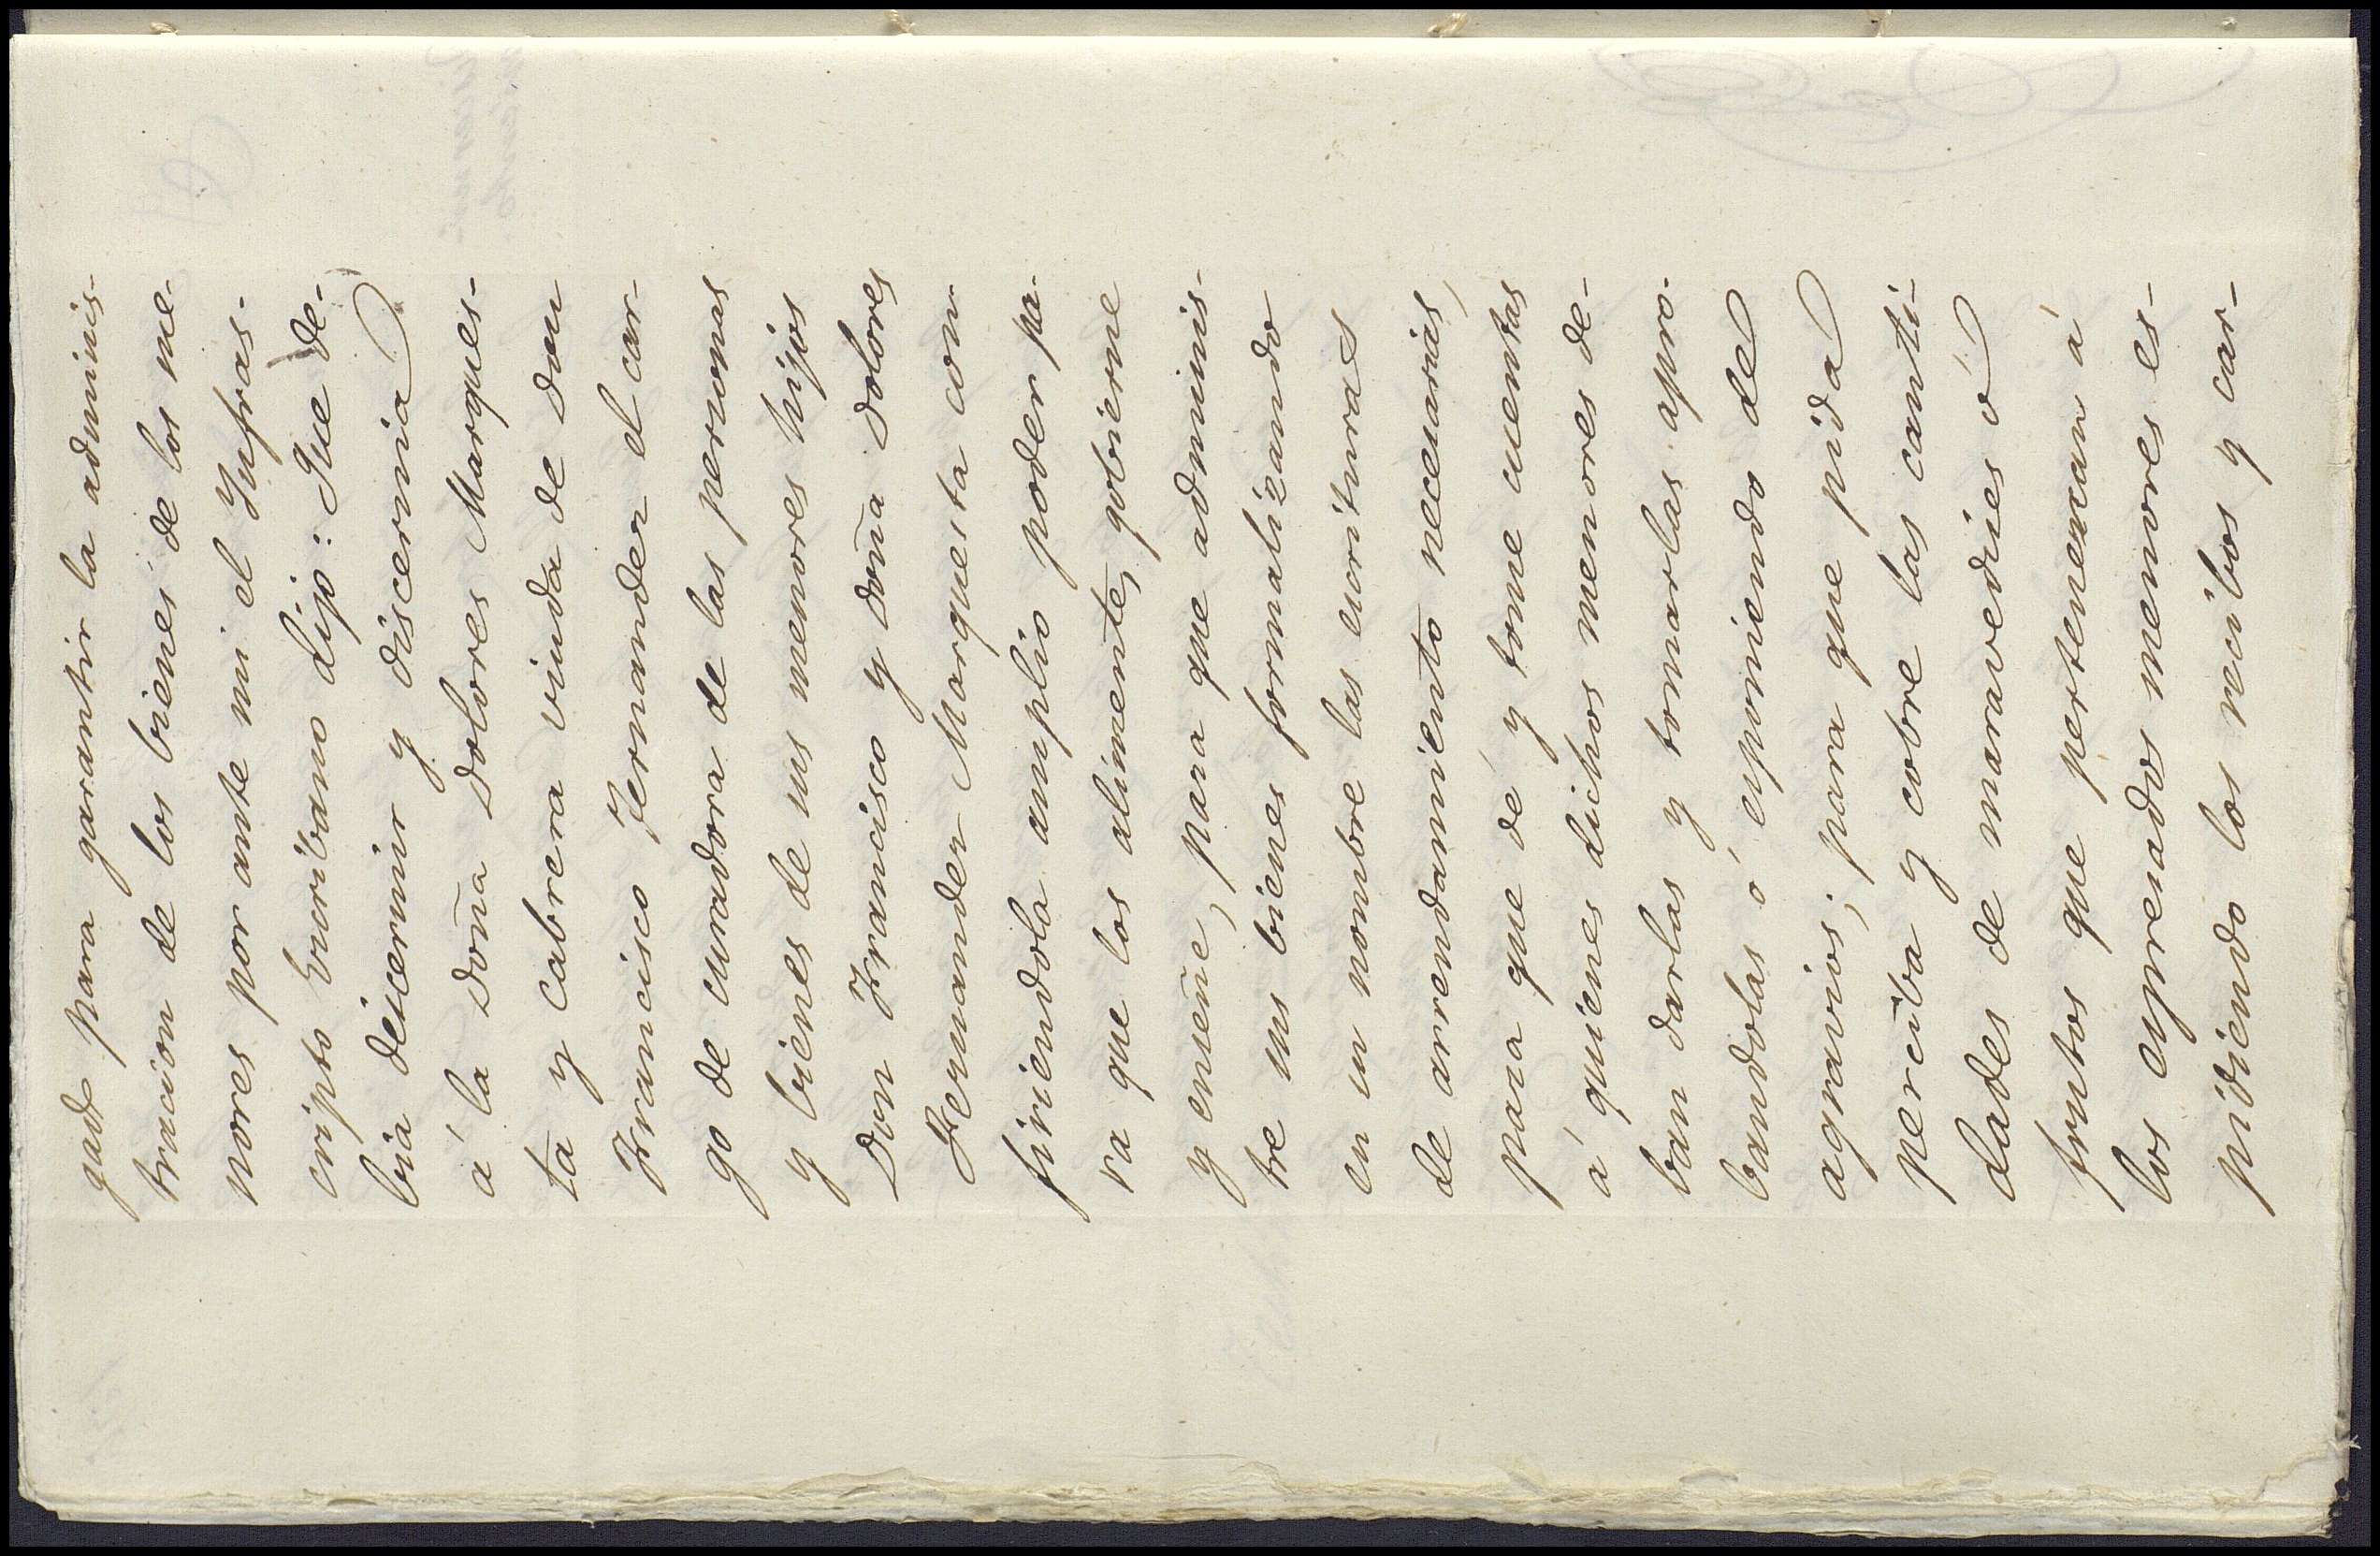 gado para garantir la adminis-
tracion de los bienes de los me-
nores por ante mi el Infras-
cripto Escribano dijo: Que de-
bia discernir y discernia
á la Doña Dolores Marques-
ta y Cabrera viuda de Don
Francisco Fernandez el car-
go de curadora de las personas
y bienes de sus menores hijos
Don Francisco y Doña Dolores
Fernandez Marquesta con-
firiendola amplio poder pa-
ra que los alimente, gobierne
y enseñe, para que adminis-
tre sus bienes formalizando
en su nombre las escrituras
de arrendamiento necesarias,
para que dé y tome cuentas
á quienes dichos menores de-
ban darlas y tomarlas apro-
bandolas ó esponiendo de
agravios; para que pida
perciba y cobre las canti-
dades de maravedies ó
frutos que pertenezcan á
los espresados menores es-
pidiendo los recibos y car-